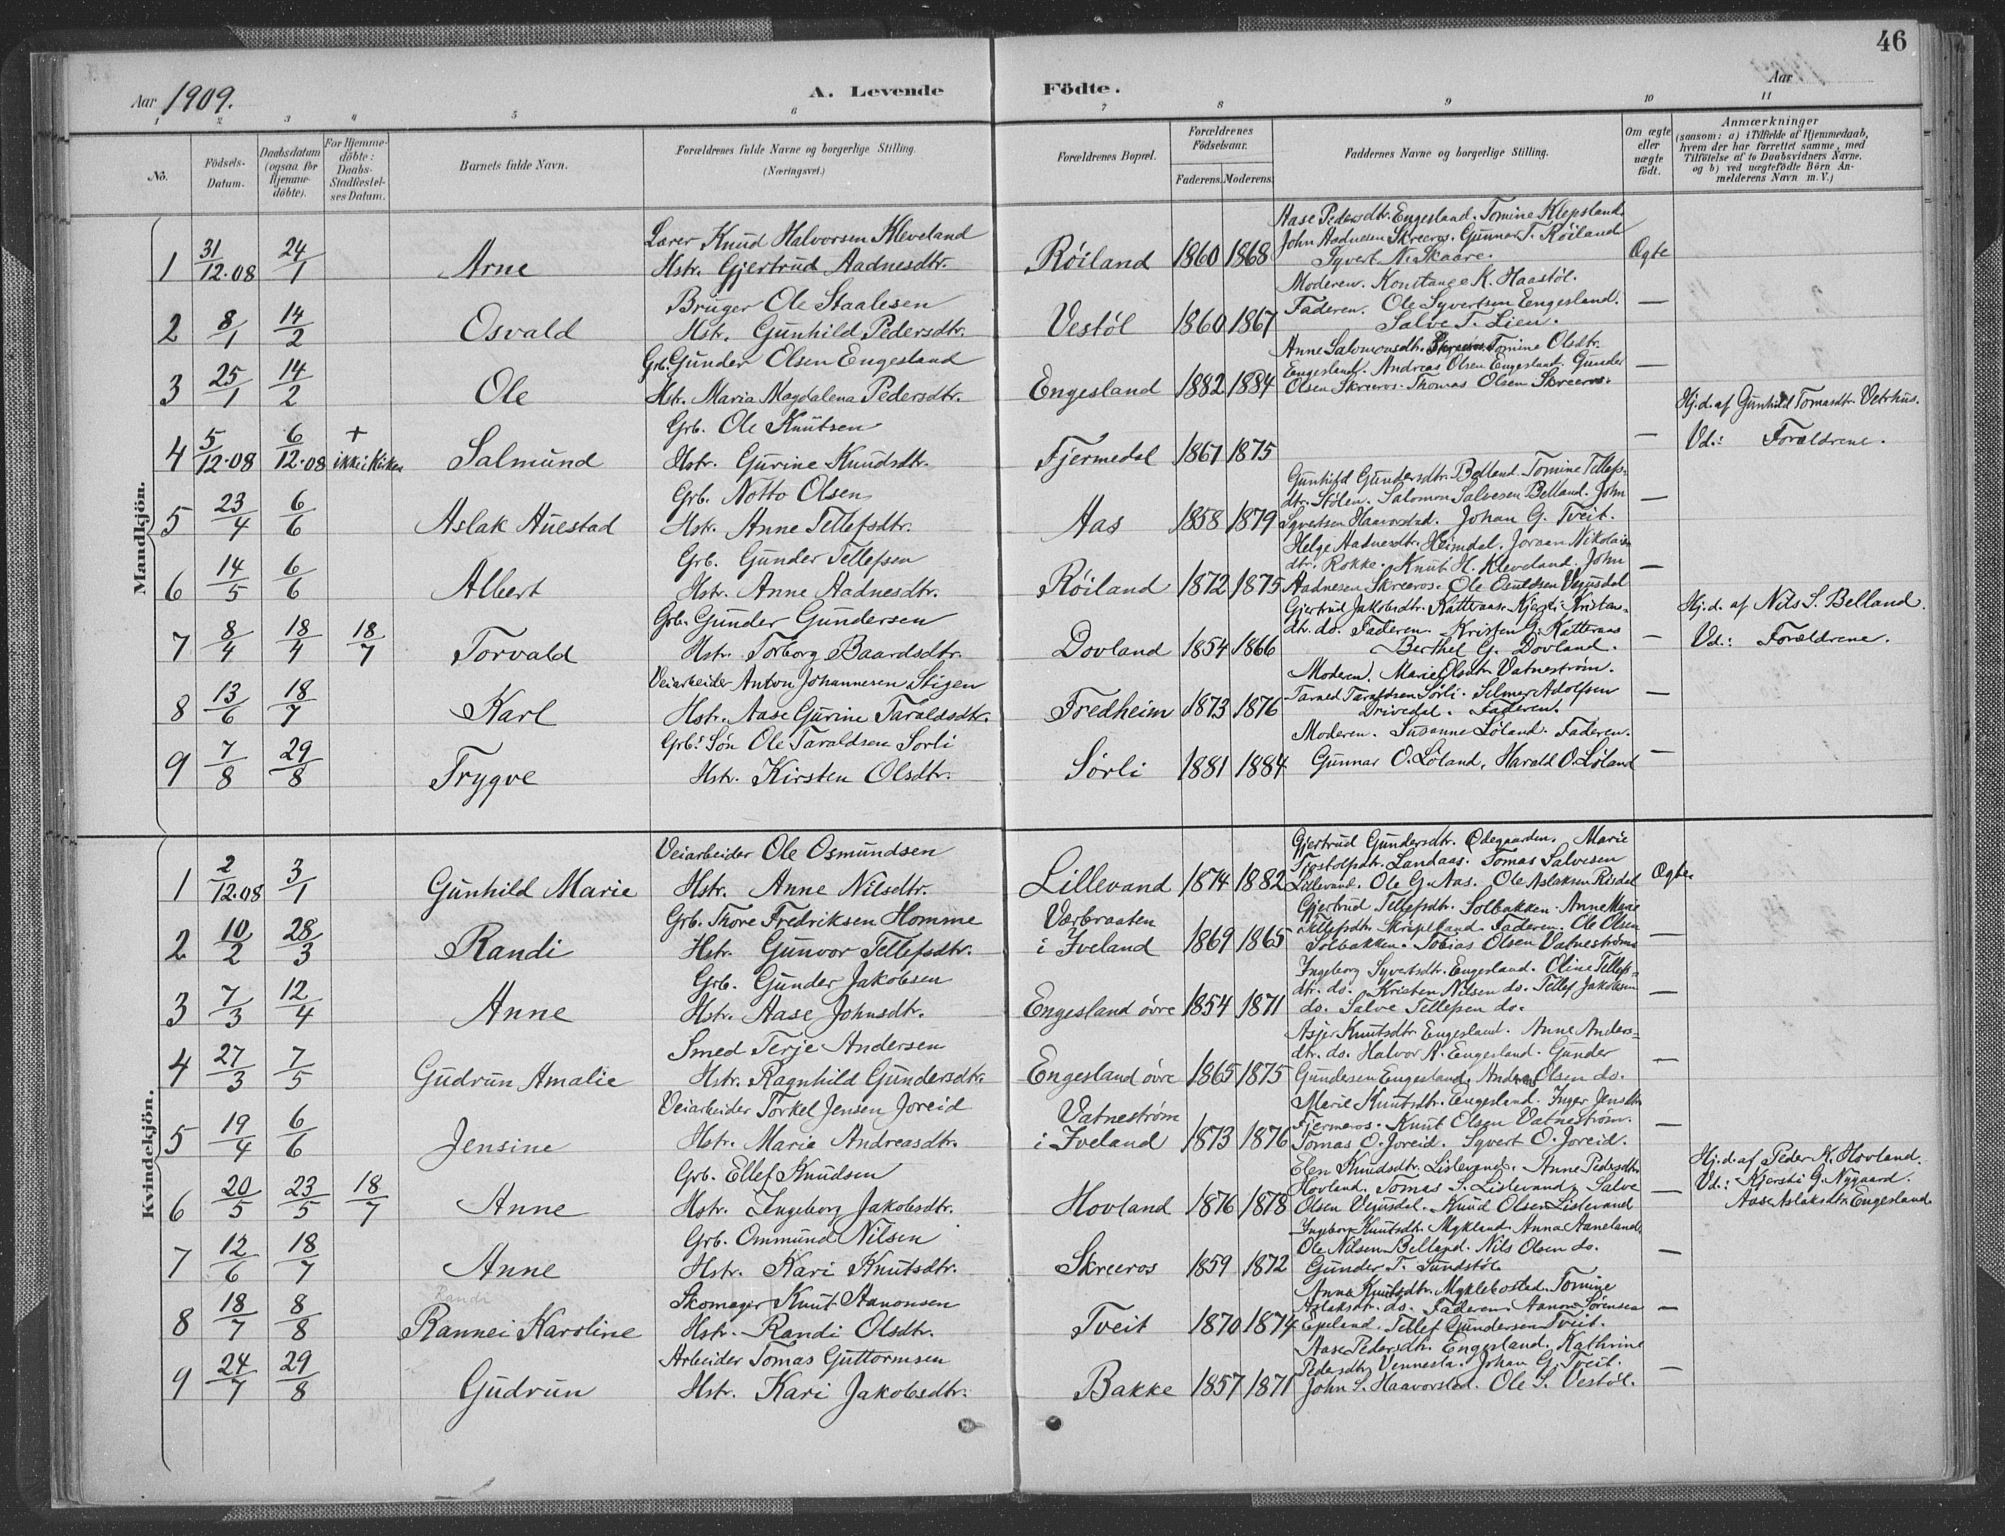 46
Aar 1909.
A. Levende Födte.
Aar
1 2 3 4 5 6 7 8 9 10 11
No.
Födsels-Datum.
Daabsdatum (ogsaa for Hjemmedöbte).
For Hjemmedöbte: Daabs-Stadfæstelses Datum.
Barnets fulde Navn.
Forældrenes fulde Navne og borgerlige Stilling. (Næringsvei.)
Forældrenes Bopæl.
Forældrenes Födselsaar.
Faderens. Moderens.
Faddernes Navne og borgerlige Stilling.
Om ægte eller uægte födt.
Anmærkninger (saasom: a) i Tilfælde af Hjemmedaab, hvem der har forrettet samme, med Tilföielse af to Daabsvidners Navne, og b) ved uægtefödte Börn Anmelderens Navn m. V.)
Mandkjön.
1 31/12·08 24/1 Arne
Lærer Knud Halvorsen Kleveland
Hstr. Gjertrud Aadnesdtr.
Røiland 1860 1868
Aase Pedersdtr. Engesland. Tomine Klepsland.
John Aadnesen Skreeros. Gunnar T. Røiland
Syvert N. Skaare.
Ægte
2 8/1 14/2 Osvald
Bruger Ole Staalesen
Hstr. Gunhild Pedersdtr.
Vestøl 1860 1867
Moderen. Konstance K. Haastøl.
Faderen. Ole Syvertsen Engesland.
Salve T. Lien.
—
3 25/1 14/2 Ole
Grb. Gunder Olsen Engesland
Hstr. Maria Magdalena Pedersdtr.
Engesland 1882 1884
Anne Salomonsdtr. Skreeros Tomine Olsdtr.
Engesland. Andreas Olsen Engesland. Gunder
Olsen Skreeros. Thomas Olsen Skreeros.
—
4 5/12·08 6/12·08 + ikke i Kirken Salmund
Grb. Ole Knutsen
Hstr. Gurine Knudsdtr.
Fjermedal 1867 1875
—
Hj.d. af Gunhild Tomasdtr. Vetrhus.
Vd.: Forældrene.
5 23/4 6/6 Aslak Auestad
Grb. Notto Olsen
Hstr. Anne Tellefsdtr.
Aas 1858 1879
Gunhild Gundersdtr. Belland. Tomine Tellefs-
dtr. Stølen. Salomon Salvesen Belland. John
Syvertsen Haavorstad. Johan G. Tveit.
—
6 14/5 6/6 Albert
Grb. Gunder Tellefsen
Hstr. Anne Aadnesdtr.
Røiland 1872 1875
Helge Aadnesdtr. Heimdal. Joraan Nikolais-
dtr. Rokke. Knut H. Kleveland. John
Aadnesen Skreeros. Ole Vegusdal
—
7 8/4 18/4 18/7 Torvald
Grb. Gunder Gundersen
Hstr. Torborg Baardsdtr.
Dovland 1854 1866
Gjertrud Jakobsdtr. Katteraas. Kjersti Kristen-
dtr. do. Faderen. Kristen G. Katteraas
Berthel G. Dovland.
—
Hj.d. af Nils S. Belland.
Vd.: Forældrene.
8 13/6 18/7 Karl
Veiarbeider Anton Johannesen Stigen
Hstr. Aase Gurine Taraldsdtr.
Fredheim 1873 1876
Moderen. Marie Olsdtr. Vatnestrøm.
Tarned Taraldsen Sørli. Selmer Adolfsen
Drivedal. Faderen.
—
9 7/8 29/8 Trygve
Grbs. Søn Ole Taraldsen Sorli
Hstr. Kirsten Olsdtr.
Sørli 1881 1884
Moderen. Susanne Løland. Faderen.
Gunnar O. Løland, Harald O. Løland
—
Kvindekjön.
1 2/12·08 3/1 Gunhild Marie
Veiarbeider Ole Osmundsen
Hstr. Anne Nilsdtr.
Lillevand 1874 1882
Gjertrud Gundersdtr. Ødegaarden. Marie
Fjostolfsdtr. Landaas. Tomas Salvesen
Lislevand. Ole G. Aas. Ole Aslaksen Risdal
Ægte
2 10/2 28/3 Randi
Grb. Thore Fredriksen Homme
Hstr. Gunvor Tellefsdtr.
Værbraaten i Iveland 1869 1865
Gjertrud Tellefsdtr. Solbakken. Anne
Tellefsdtr. Skripeland. Faderen. Ole Olsen
Solbakken. Tobias Olsen Vatnestrøm
—
3 7/3 12/4 Anne
Grb. Gunder Jakobsen
Hstr. Aase Johnsdtr.
Engesland øvre 1854 1871
Ingeborg Syvertsdtr. Engesland. Oline Tellefs-
dtr. do. Kristen Nilsen do. Tellef Jakobsen
do. Salve Tellefsen do.
—
4 27/3 7/5 Gudrun Amalie
Smed Terje Andersen
Hstr. Ragnhild Gundersdtr.
Engesland øvre 1865 1875
Asjer Knutsdtr. Engesland. Anne Anders-
dtr. do. Halvor A. Engesland. Gunder
Gundersen Engesland. Andreas Olsen do.
—
5 19/4 6/6 Jensine
Veiarbeider Torkel Jensen Joreid
Hstr. Marie Andreasdtr.
Vatnestrøm i Iveland 1873 1876
Marie Knutsdtr. Engesland. Inger Jensdtr.
Fjermeros. Knut Olsen Vatnestrøm.
Tomas O. Joreid. Syvert O. Joreid.
—
6 20/5 23/5 18/7 Anne
Grb. Ellef Knudsen
Hstr. Ingeborg Jakobsdtr.
Hovland 1876 1878
Elen Knudsdtr. Lislevand. Anne Pedersdtr.
Hovland. Tomas S. Lislevand. Salve
Olsen Vegusdal. Knud Olsen Lislevand
—
Hj.d. af Peder K. Hovland.
Vd.: Kjersti G. Nygaard.
Aase Aslaksdtr. Engesland.
7 12/6 18/7 Anne
Grb. Ommund Nilsen
Hstr. Kari Knutsdtr.
Skreeros 1859 1872
Ingeborg Knutsdtr. Mykland. Anna Aaneland.
Ole Nilsen Belland. Nils Olsen do.
Gunder T. Sundstøl
—
8 18/7 8/8 Rannei Karoline
Randi
Skomager Knut Aanonsen
Hstr. Randi Olsdtr.
Tveit 1870 1874
Anne Knutsdtr. Myklebostad. Tomine
Aslaksdtr. do. Faderen. Aanon Sørensen
Epeland. Tellef Gundersen Tveit.
—
9 24/7 29/8 Gudrun
Arbeider Tomas Guttormsen
Hstr. Kari Jakobsdtr.
Bakke 1857 1871
Aase Pedersdtr. Engesland. Kathrine
Pedersdtr. Vennesla. Johan G. Tveit.
John S. Haavorstad. Ole S. Vestøl.
—